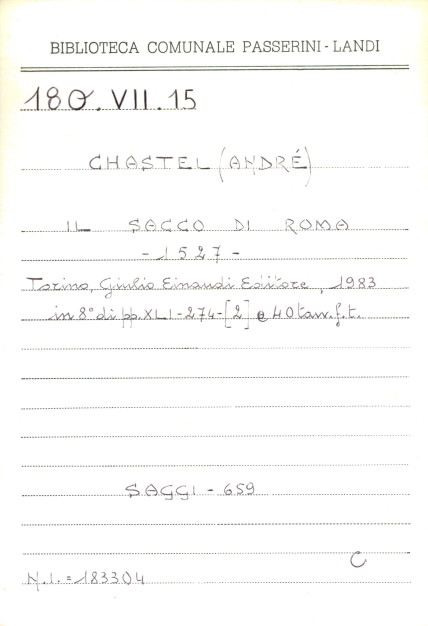 BIBLIOTECA COMUNALE PASSERINI-LANDI
180.VII.15
CHASTEL (ANDRÉ)
IL SACCO DI ROMA
-1527-
Torino, Giulio Einaudi Editore, 1983
in 8° di pp. XLI-274-[2] e 40 tav. f.t.
SAGGI - 659
C
N.I. = 183304